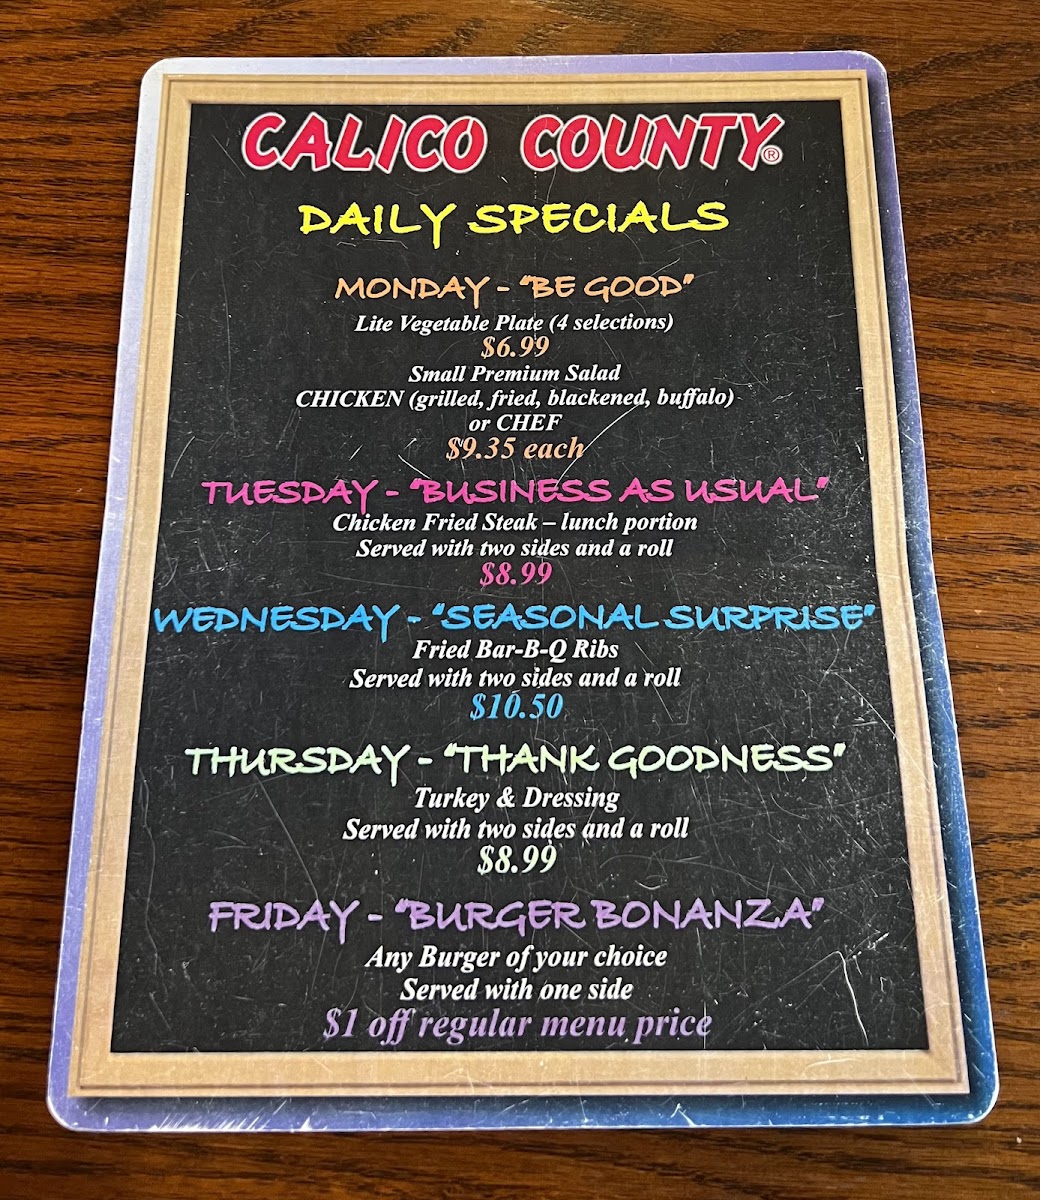 CALICO COUNTY®
DAILY SPECIALS
MONDAY - "BE GOOD"
Lite Vegetable Plate (4 selections)
$6.99
Small Premium Salad
CHICKEN (grilled, fried, blackened, buffalo)
or CHEF
$9.35 each
TUESDAY - "BUSINESS AS USUAL"
Chicken Fried Steak – lunch portion
Served with two sides and a roll
$8.99
WEDNESDAY - "SEASONAL SURPRISE"
Fried Bar-B-Q Ribs
Served with two sides and a roll
$10.50
THURSDAY - "THANK GOODNESS"
Turkey & Dressing
Served with two sides and a roll
$8.99
FRIDAY - "BURGER BONANZA"
Any Burger of your choice
Served with one side
$1 off regular menu price